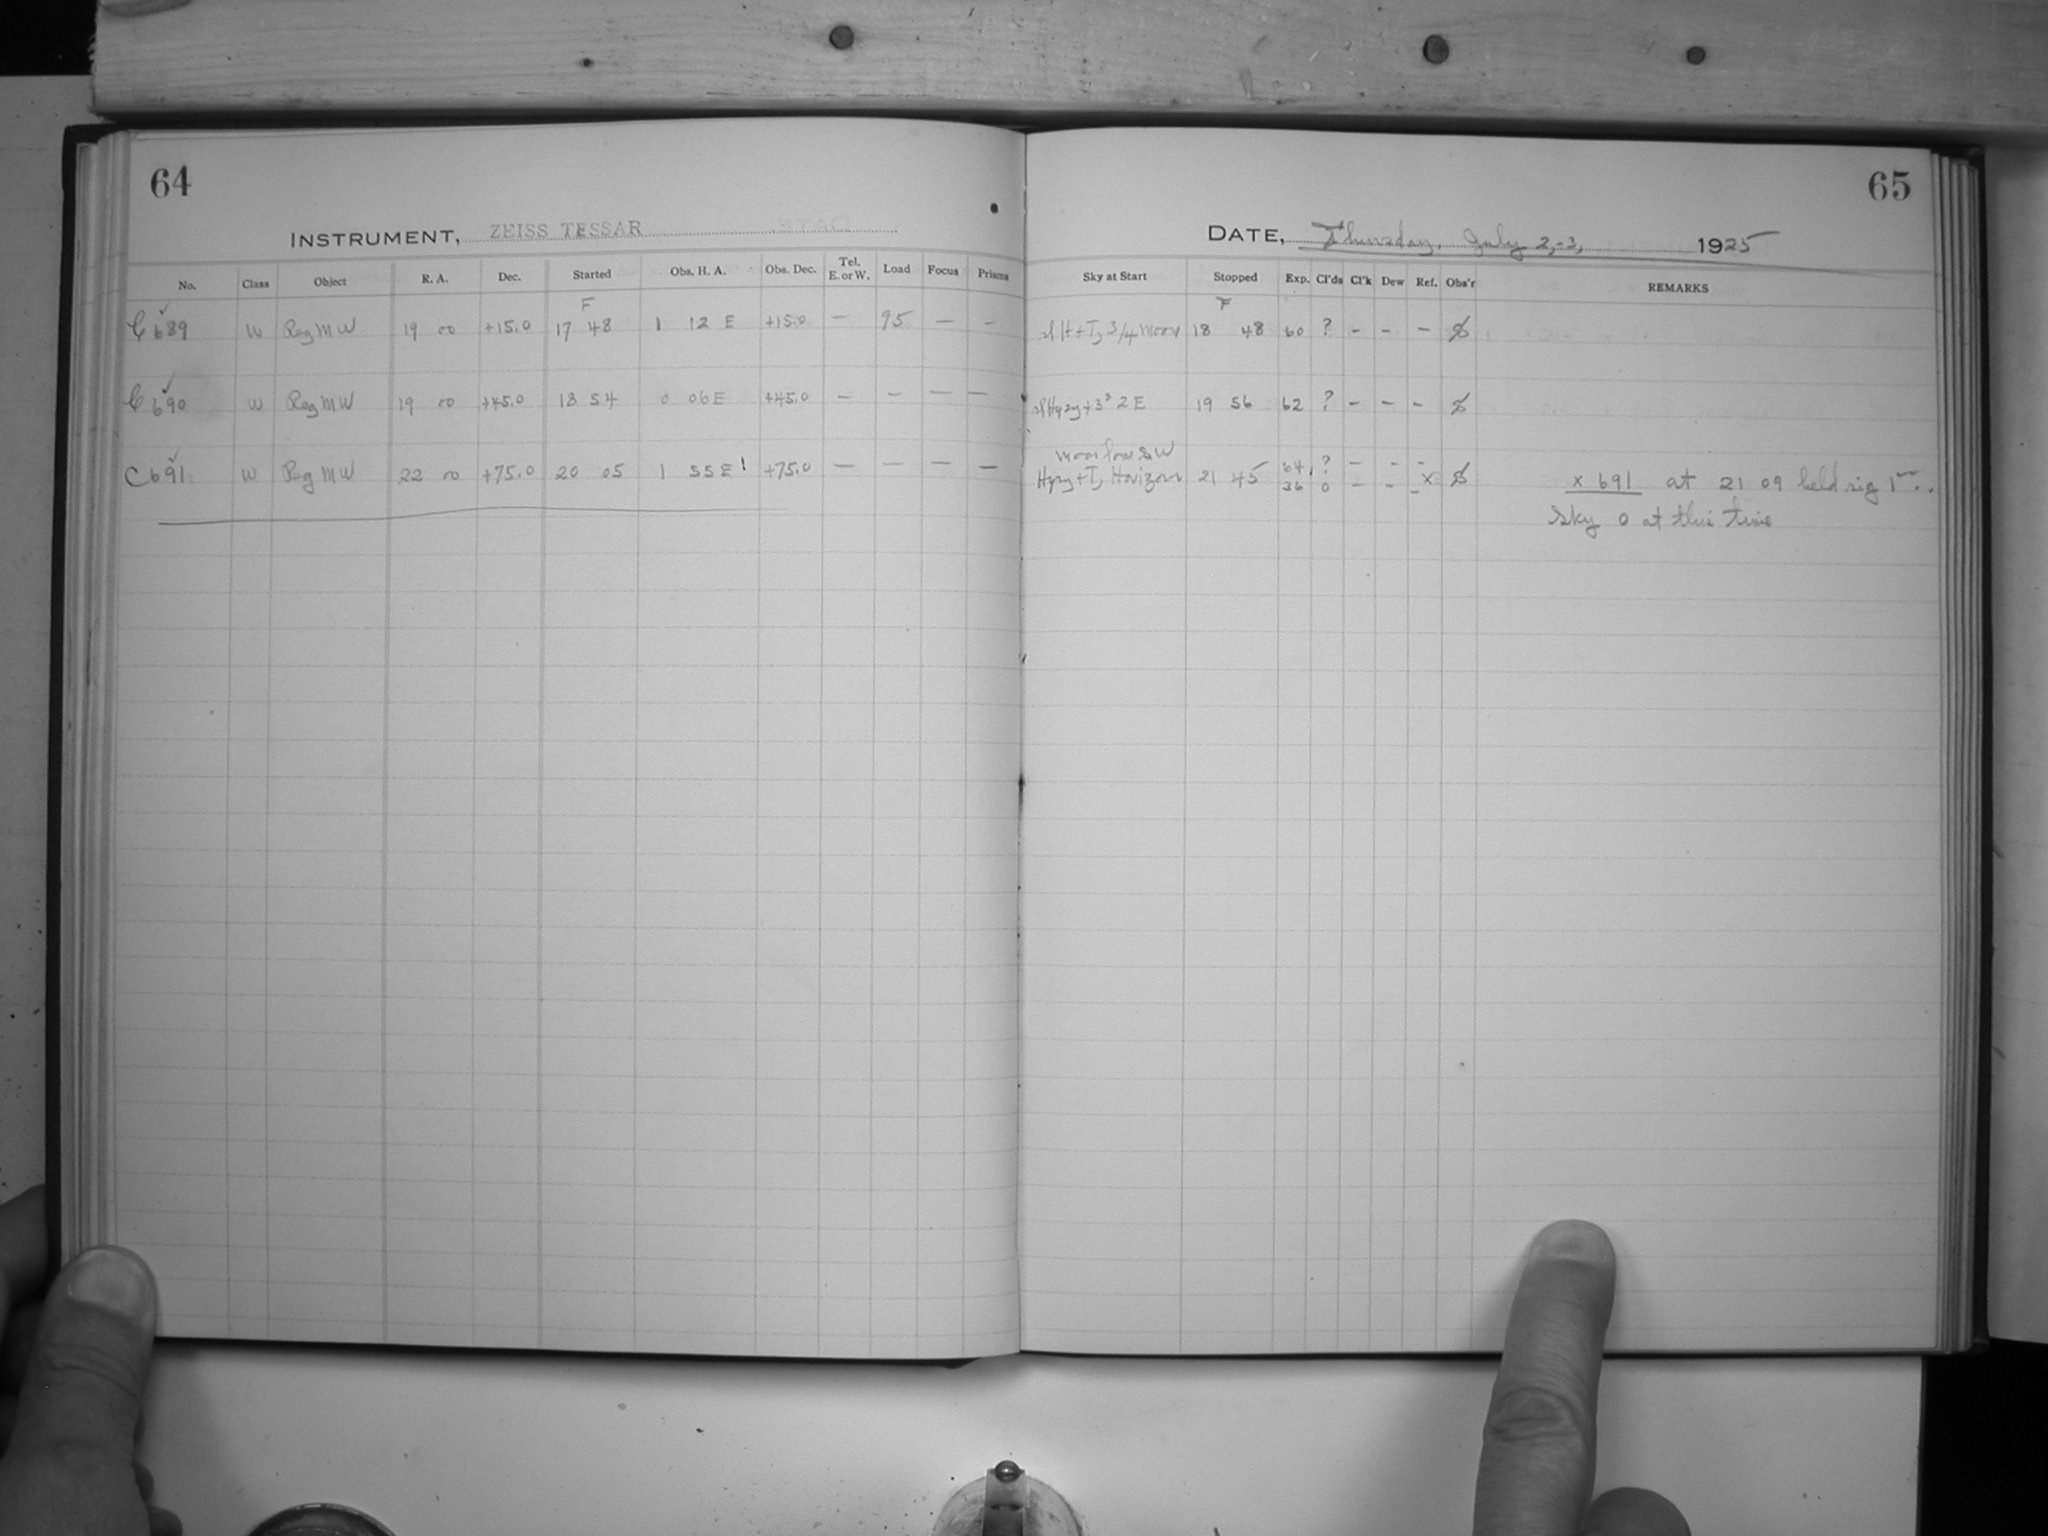 64
INSTRUMENT, ZEISS TESSAR
No. Class Object R. A. Dec. Started Obs. H. A. Obs. Dec. Tel. E. or W. Load Focus Prisms
F
C 689 ✓ W Reg MW 19 00 +15.0 17 48 1 12 E +15.0 — 95 — —
C 690 ✓ W Reg MW 19 00 +45.0 18 54 0 06 E +45.0 — — — —
C 691 ✓ W Reg MW 22 00 +75.0 20 05 1 55 E +75.0 — — — —
65
DATE, Thursday, July 2,-3, 1925
Sky at Start Stopped Exp. Cl'ds Cl'k Dew Ref. Obs'r REMARKS
F
3/4 moon 18 48 60 ? - - -
2 E 19 56 62 ? - - -
moon low SW
Hzy + Horizon 21 45 64, ? - - -
36 0 - - - X
x 691 at 21 09 held rig 1
Sky 0 at this time